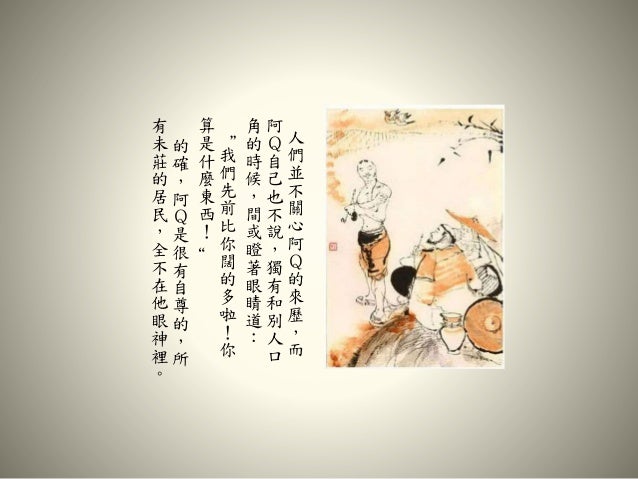 人們並不關心阿Q的來歷，而
阿Q自己也不說，獨有和別人口
角的時候，間或瞪著眼睛道：
”我們先前比你闊的多啦！你
算是什麼東西！“
的確，阿Q是很有自尊的，所
有未莊的居民，全不在他眼神裡。